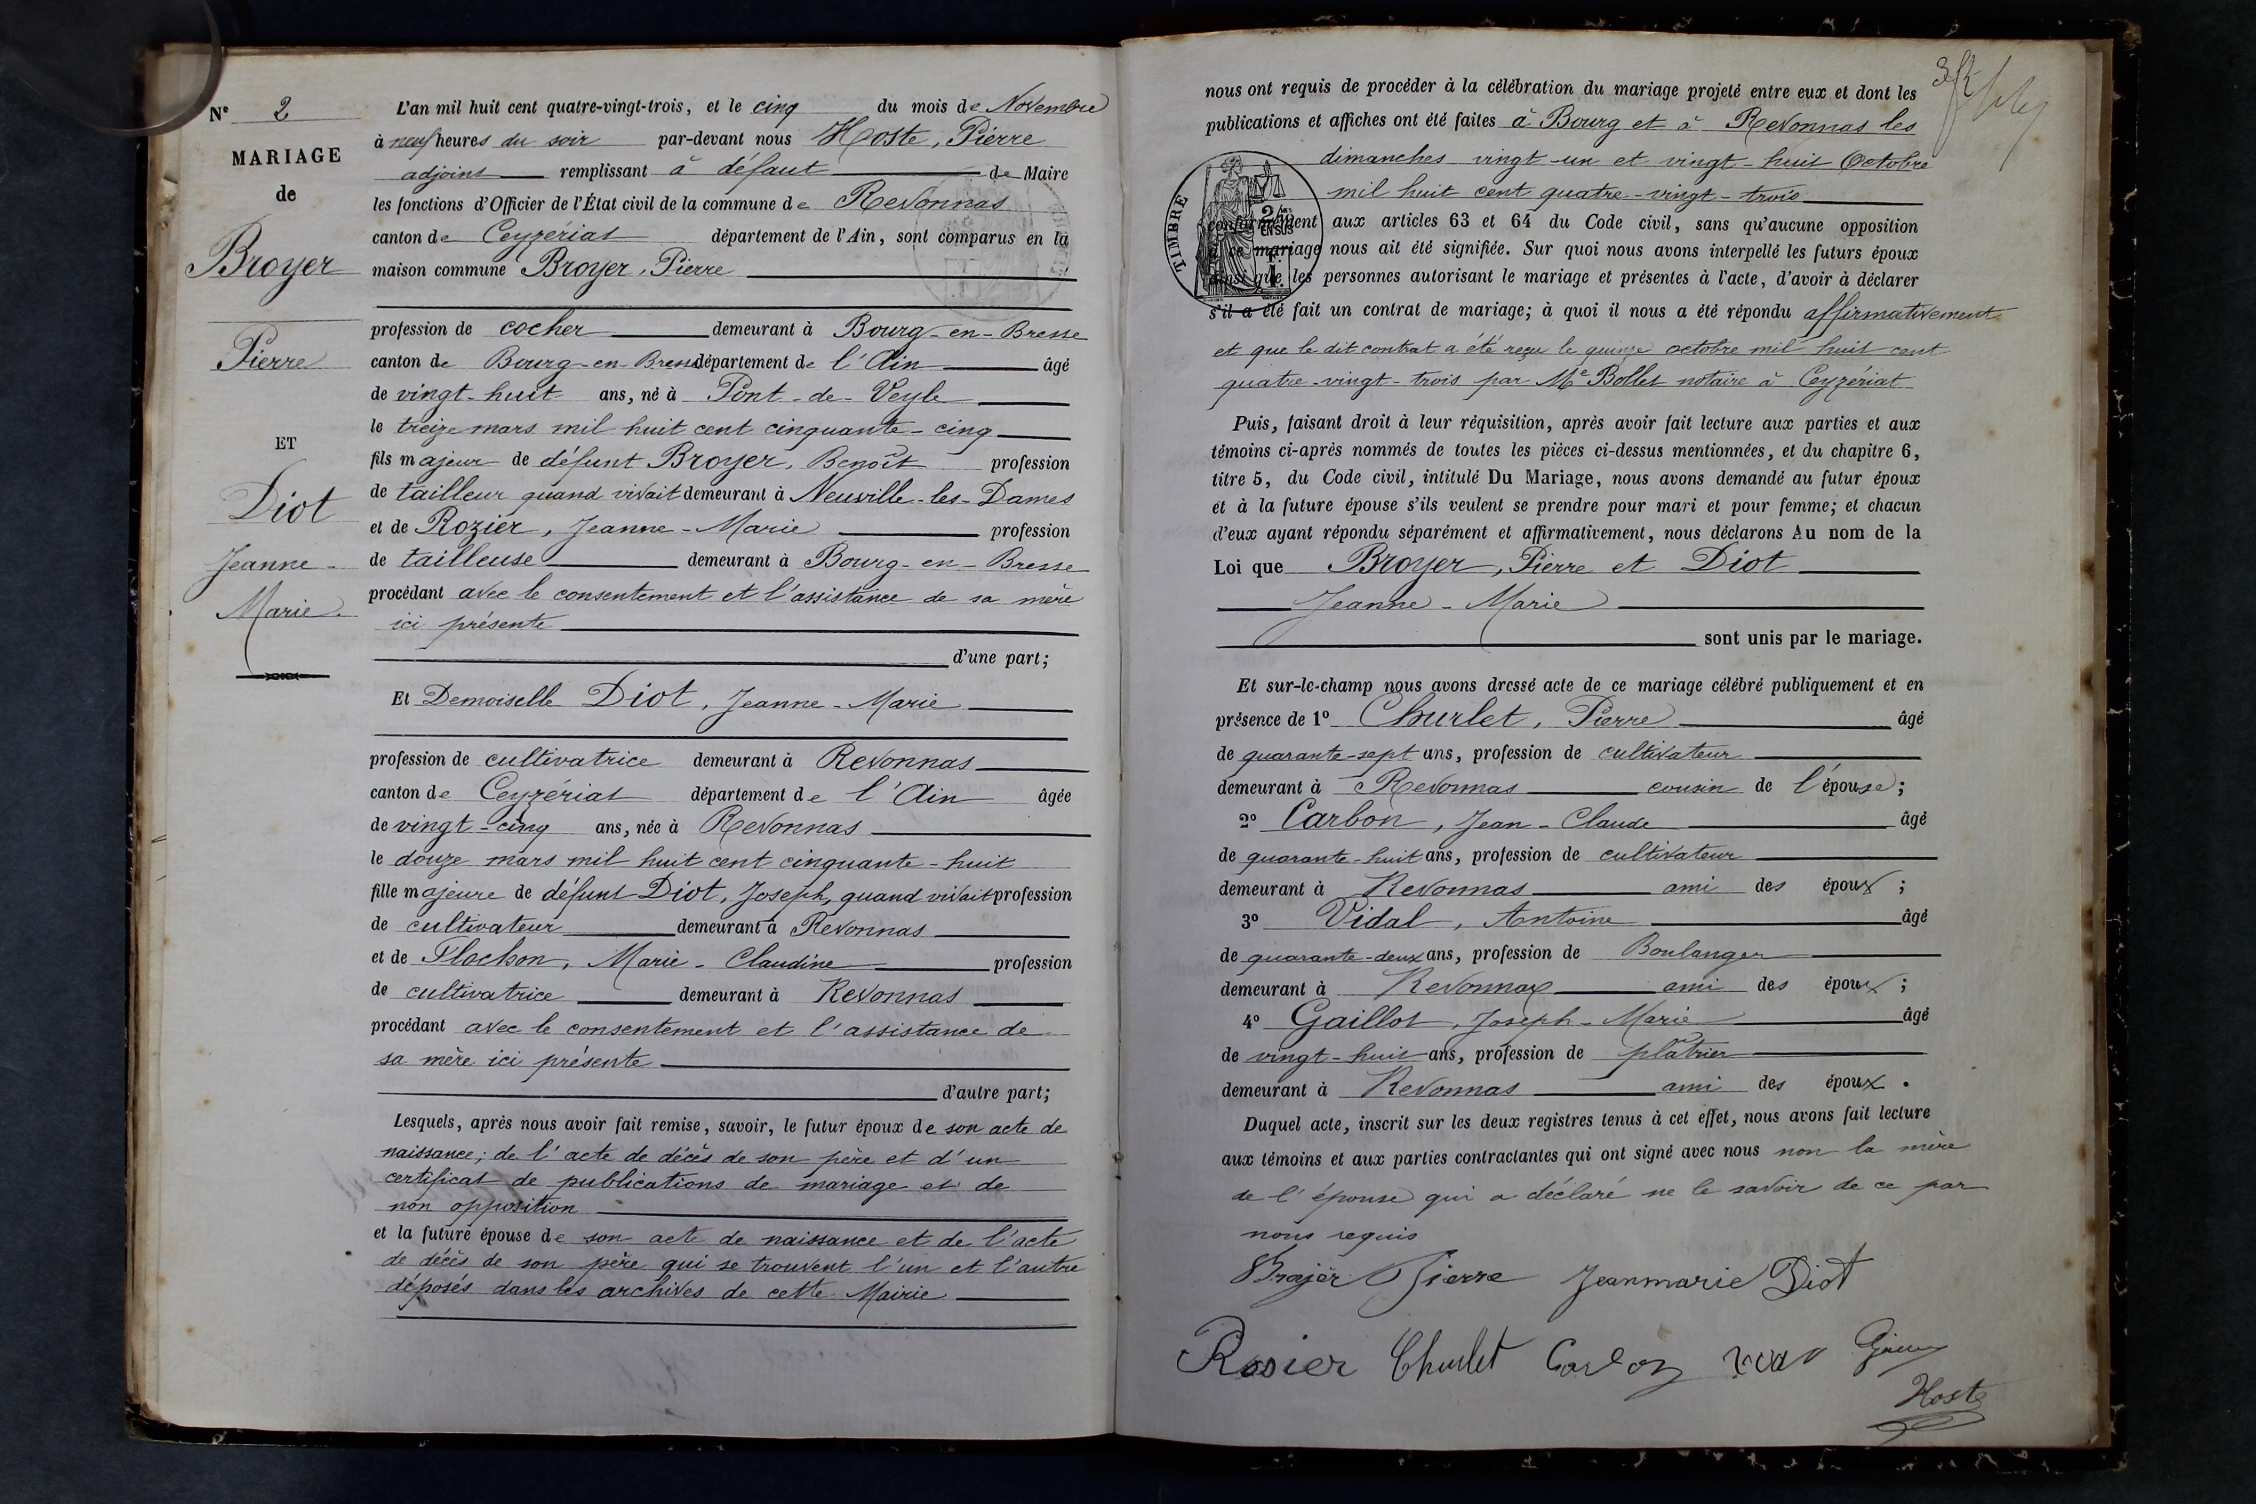 N° 2
MARIAGE
de
Broyer
Pierre
ET
Diot
Jeanne-
Marie.
L'an mil huit cent quatre-vingt-trois, et le cinq du mois de Novembre
à neuf heures du soir par-devant nous Hoste, Pierre
adjoint remplissant à défaut de Maire
les fonctions d'Officier de l'État civil de la commune de Revonnas
canton de Ceyzériat département de l'Ain, sont comparus en la
maison commune Broyer, Pierre
profession de cocher demeurant à Bourg-en-Bresse
canton de Bourg-en-Bresse département de l'Ain âgé
de vingt-huit ans, né à Pont-de-Veyle
le treize mars mil huit cent cinquante-cinq
fils majeur de défunt Broyer, Benoît profession
de tailleur quand vivait demeurant à Neuville-les-Dames
et de Rozier, Jeanne-Marie profession
de tailleuse demeurant à Bourg-en-Bresse
procédant avec le consentement et l'assistance de sa mère
ici présente
d'une part;
Et Demoiselle Diot, Jeanne-Marie
profession de cultivatrice demeurant à Revonnas
canton de Ceyzériat département de l'Ain âgée
de vingt-cinq ans, née à Revonnas
le douze mars mil huit cent cinquante-huit
fille majeure de défunt Diot, Joseph, quand vivait profession
de cultivateur demeurant à Revonnas
et de Flochon, Marie-Claudine profession
de cultivatrice demeurant à Revonnas
procédant avec le consentement et l'assistance de
sa mère ici présente
d'autre part;
Lesquels, après nous avoir fait remise, savoir, le futur époux de son acte de
naissance; de l'acte de décès de son père et d'un
certificat de publications de mariage et de
non opposition
et la future épouse de son acte de naissance et de l'acte
de décès de son père qui se trouvent l'un et l'autre
déposés dans les archives de cette Mairie
nous ont requis de procéder à la célébration du mariage projeté entre eux et dont les
publications et affiches ont été faites à Bourg et à Revonnas les
dimanches vingt-un et vingt-huit Octobre
mil huit cent quatre-vingt-trois
TIMBRE
conformément aux articles 63 et 64 du Code civil, sans qu'aucune opposition
à ce mariage nous ait été signifiée. Sur quoi nous avons interpellé les futurs époux
ainsi que les personnes autorisant le mariage et présentes à l'acte, d'avoir à déclarer
s'il a été fait un contrat de mariage; à quoi il nous a été répondu affirmativement
et que le dit contrat a été reçu le quinze octobre mil huit cent
quatre-vingt-trois par Me Bollet notaire à Ceyzériat
Puis, faisant droit à leur réquisition, après avoir fait lecture aux parties et aux
témoins ci-après nommés de toutes les pièces ci-dessus mentionnées, et du chapitre 6,
titre 5, du Code civil, intitulé Du Mariage, nous avons demandé au futur époux
et à la future épouse s'ils veulent se prendre pour mari et pour femme; et chacun
d'eux ayant répondu séparément et affirmativement, nous déclarons Au nom de la
Loi que Broyer, Pierre et Diot
Jeanne-Marie
sont unis par le mariage.
Et sur-le-champ nous avons dressé acte de ce mariage célébré publiquement et en
présence de 1° Churlet, Pierre âgé
de quarante-sept ans, profession de cultivateur
demeurant à Revonnas cousin de l'épouse;
2° Carbon, Jean-Claude âgé
de quarante-huit ans, profession de cultivateur
demeurant à Revonnas ami des époux;
3° Vidal, Antoine âgé
de quarante-deux ans, profession de Boulanger
demeurant à Revonnas ami des époux;
4° Gaillot, Joseph-Marie âgé
de vingt-huit ans, profession de plâtrier
demeurant à Revonnas ami des époux.
Duquel acte, inscrit sur les deux registres tenus à cet effet, nous avons fait lecture
aux témoins et aux parties contractantes qui ont signé avec nous non la mère
de l'épouse qui a déclaré ne le savoir de ce par
nous requis
Broyer Pierre Jeanmarie Diot
Rosier Churlet Carbon
Hoste